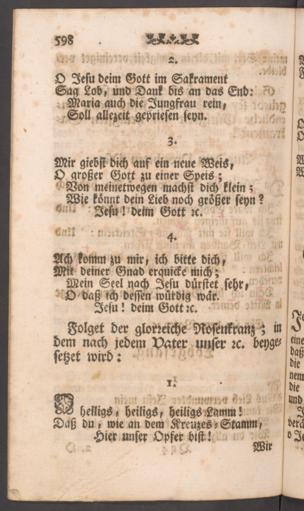 598
2.
O Jesu deim Gott im Sakrament
Sag Lob, und Dank bis an das End:
Maria auch die Jungfrau rein,
Soll allezeit gepriesen seyn.
3.
Mir giebst dich auf ein neue Weis,
O großer Gott zu einer Speis;
Von meinetwegen machst dich klein;
Wie könnt dein Lieb noch größer seyn?
Jesu! deim Gott ꝛc.
4.
Ach komm zu mir, ich bitte dich,
Mit deiner Gnad erquicke mich;
Mein Seel nach Jesu dürstet sehr,
O daß ich dessen würdig wär.
Jesu! deim Gott ꝛc.
Folget der glorreiche Rosenkranz; in
dem nach jedem Vater unser ꝛc. beyge-
setzet wird:
1.
O heiligs, heiligs, heiligs Lamm!
Daß du, wie an dem Kreuzes-Stamm,
Hier unser Opfer bist!
Wir